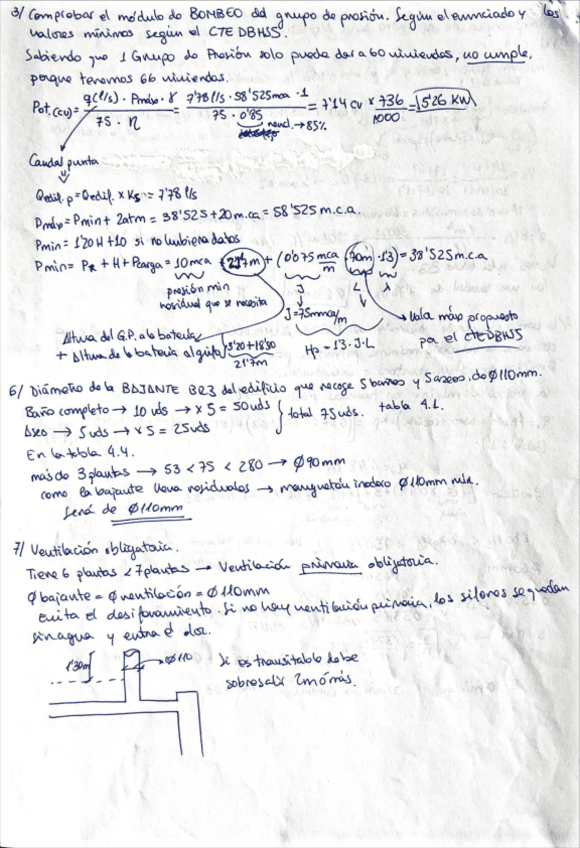 3/ Comprobar el módulo de BOMBEO del grupo de presión. Según el enunciado y los
valores mínimos según el CTE DBHS5.
Sabiendo que 1 Grupo de Presión solo puede dar a 60 viviendas, no cumple,
porque tenemos 66 viviendas.
Pot.(cv) = q(l/s) · Pmáx · γ / 75 · η = 7'78 l/s · 58'525mca · 1 / 75 · 0'85 = 7'14 cv × 736/1000 = 5'26 KW
→ 85%
Caudal punta
Qedif.p = Qedif. × Ks = 7'78 l/s
Pmáx = Pmin + 2atm = 38'525 + 20m.ca = 58'525 m.c.a.
Pmin = 1'20 H + 10 si no hubiera datos
Pmin = PR + H + Pcarga = 10mca + 21'7m + (0'075 mca/m · 70m · 1'3) = 38'525m.c.a
presión min
residual que se necesita
J L λ
J = 75mmca/m
Hp = 1'3 · J · L
→ Vale máx propuesto
por el CTE DBHS
Altura del G.P. a la batería
+ Altura de la batería al grifo
3'20 + 18'50
21'7m
6/ Diámetro de la BAJANTE BR3 del edificio que recoge 5 baños y 5 aseos, do Ø110mm.
Baño completo → 10 uds → × 5 = 50 uds
Aseo → 5 uds → × 5 = 25 uds
total 75 uds. tabla 4.1.
En la tabla 4.4.
más de 3 plantas → 53 < 75 < 280 → Ø 90 mm
como la bajante lleva residuales → manguetón inodoro Ø110mm
Será de Ø110mm
7/ Ventilación obligatoria.
Tiene 6 plantas < 7 plantas → Ventilación primaria obligatoria.
Ø bajante = Ø ventilación = Ø 110 mm
Evita el desifonamiento. Si no hay ventilación primaria, los sifones se quedan
sin agua y entra el olor.
1'30m
→ Ø110
Si es transitable debe
sobresalir 2m ó más.